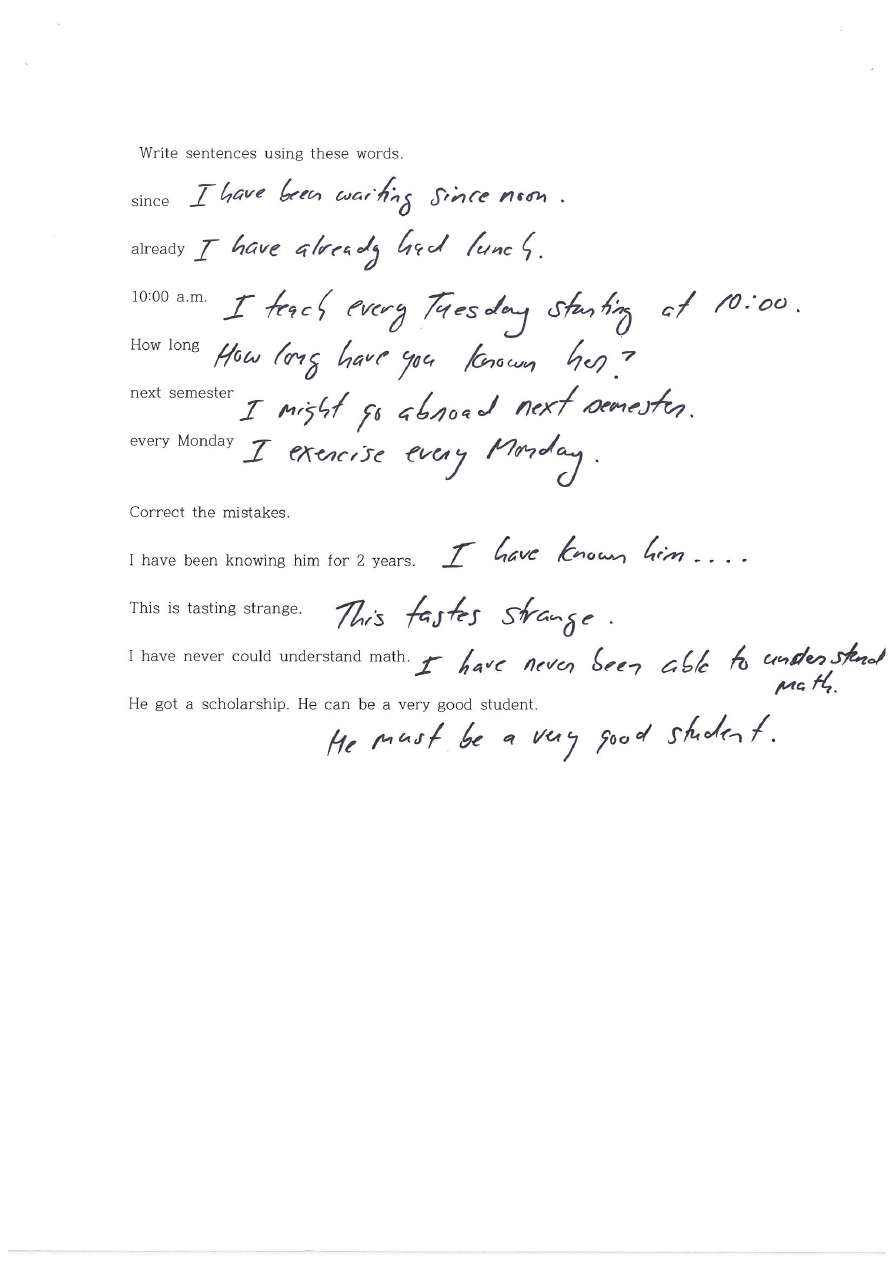 Write sentences using these words.
since I have been waiting since noon.
already I have already had lunch.
10:00 a.m. I teach every Tuesday starting at 10:00.
How long How long have you known her?
next semester I might go abroad next semester.
every Monday I exercise every Monday.
Correct the mistakes.
I have been knowing him for 2 years. I have known him....
This is tasting strange. This tastes strange.
I have never could understand math. I have never been able to understand
math.
He got a scholarship. He can be a very good student.
He must be a very good student.